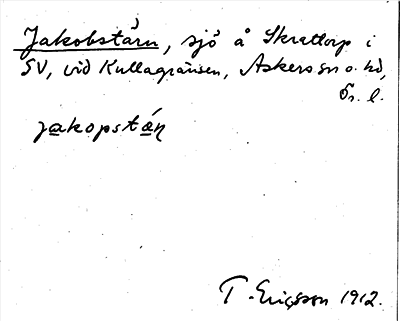 Jakobstärn, sjö å Skrattorp i
SV, vid Kullagränsen, Askers sn o. hd,
Ör. l.
jakopstän
T. Ericsson 1912.